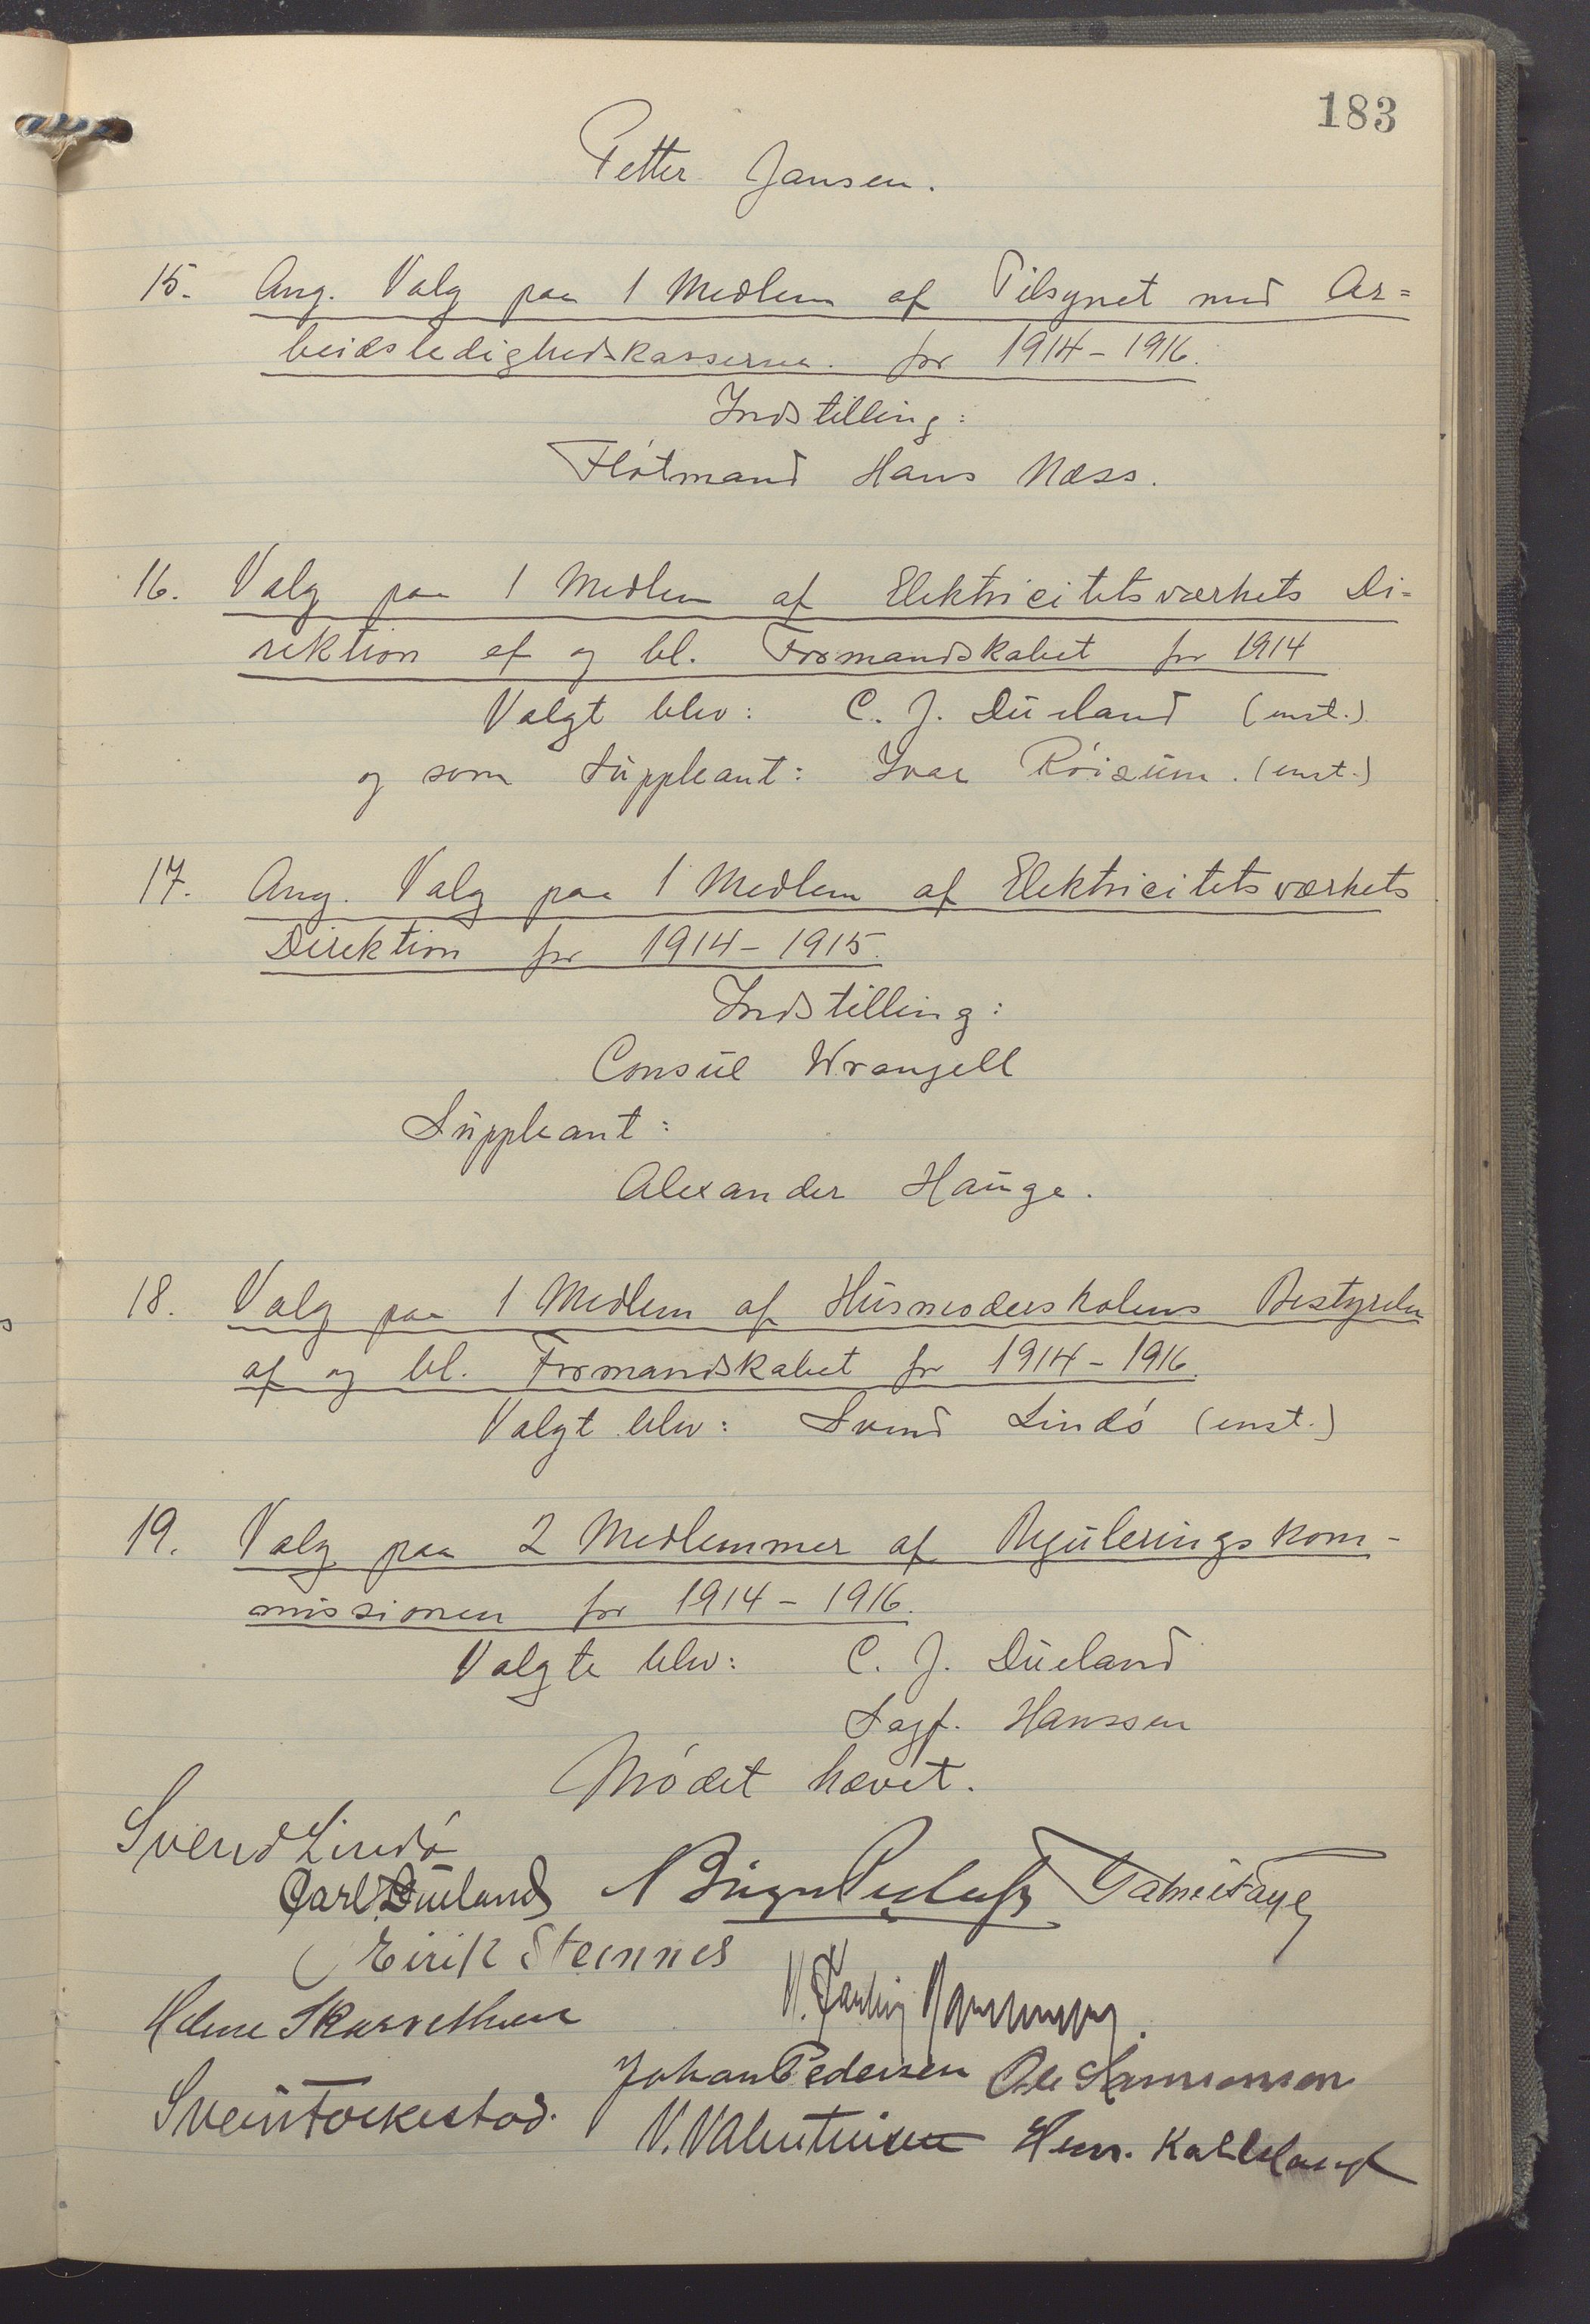 183
Petter Jansen.
15. Ang. Valg paa 1 Medlem af Tilsynet med Ar=
beidsledighedskasserne. for 1914-1916.
Indstilling:
Fløtmand Hans Næss.
16. Valg paa 1 Medlem af Elektricitetsværkets Di-
rektion af og bl. Formandskabet for 1914
Valgt blev: C. J. Dueland (enst.)
og som Suppleant: Ivar Røisum. (enst.)
17. Ang. Valg paa 1 Medlem af Elektricitetsværkets
Direktion for 1914-1915.
Indstilling:
Consul Wrangell
Suppleant:
Alexander Hauge.
18. Valg paa 1 Medlem af Husmoderskolens Bestyrelse
af og bl. Formandskabet for 1914-1916.
Valgt blev: Svend Lindø (enst.)
19. Valg paa 2 Medlemmer af Reguleringskom-
missionen for 1914-1916.
Valgte blev: C. J. Dueland
Sagf. Hanssen
Mødet hævet.
Svend Lindø
Carl J. Dueland
Eirik Steinnes
Johan Pedersen
Svein Fockestad.
V. Valentinsen